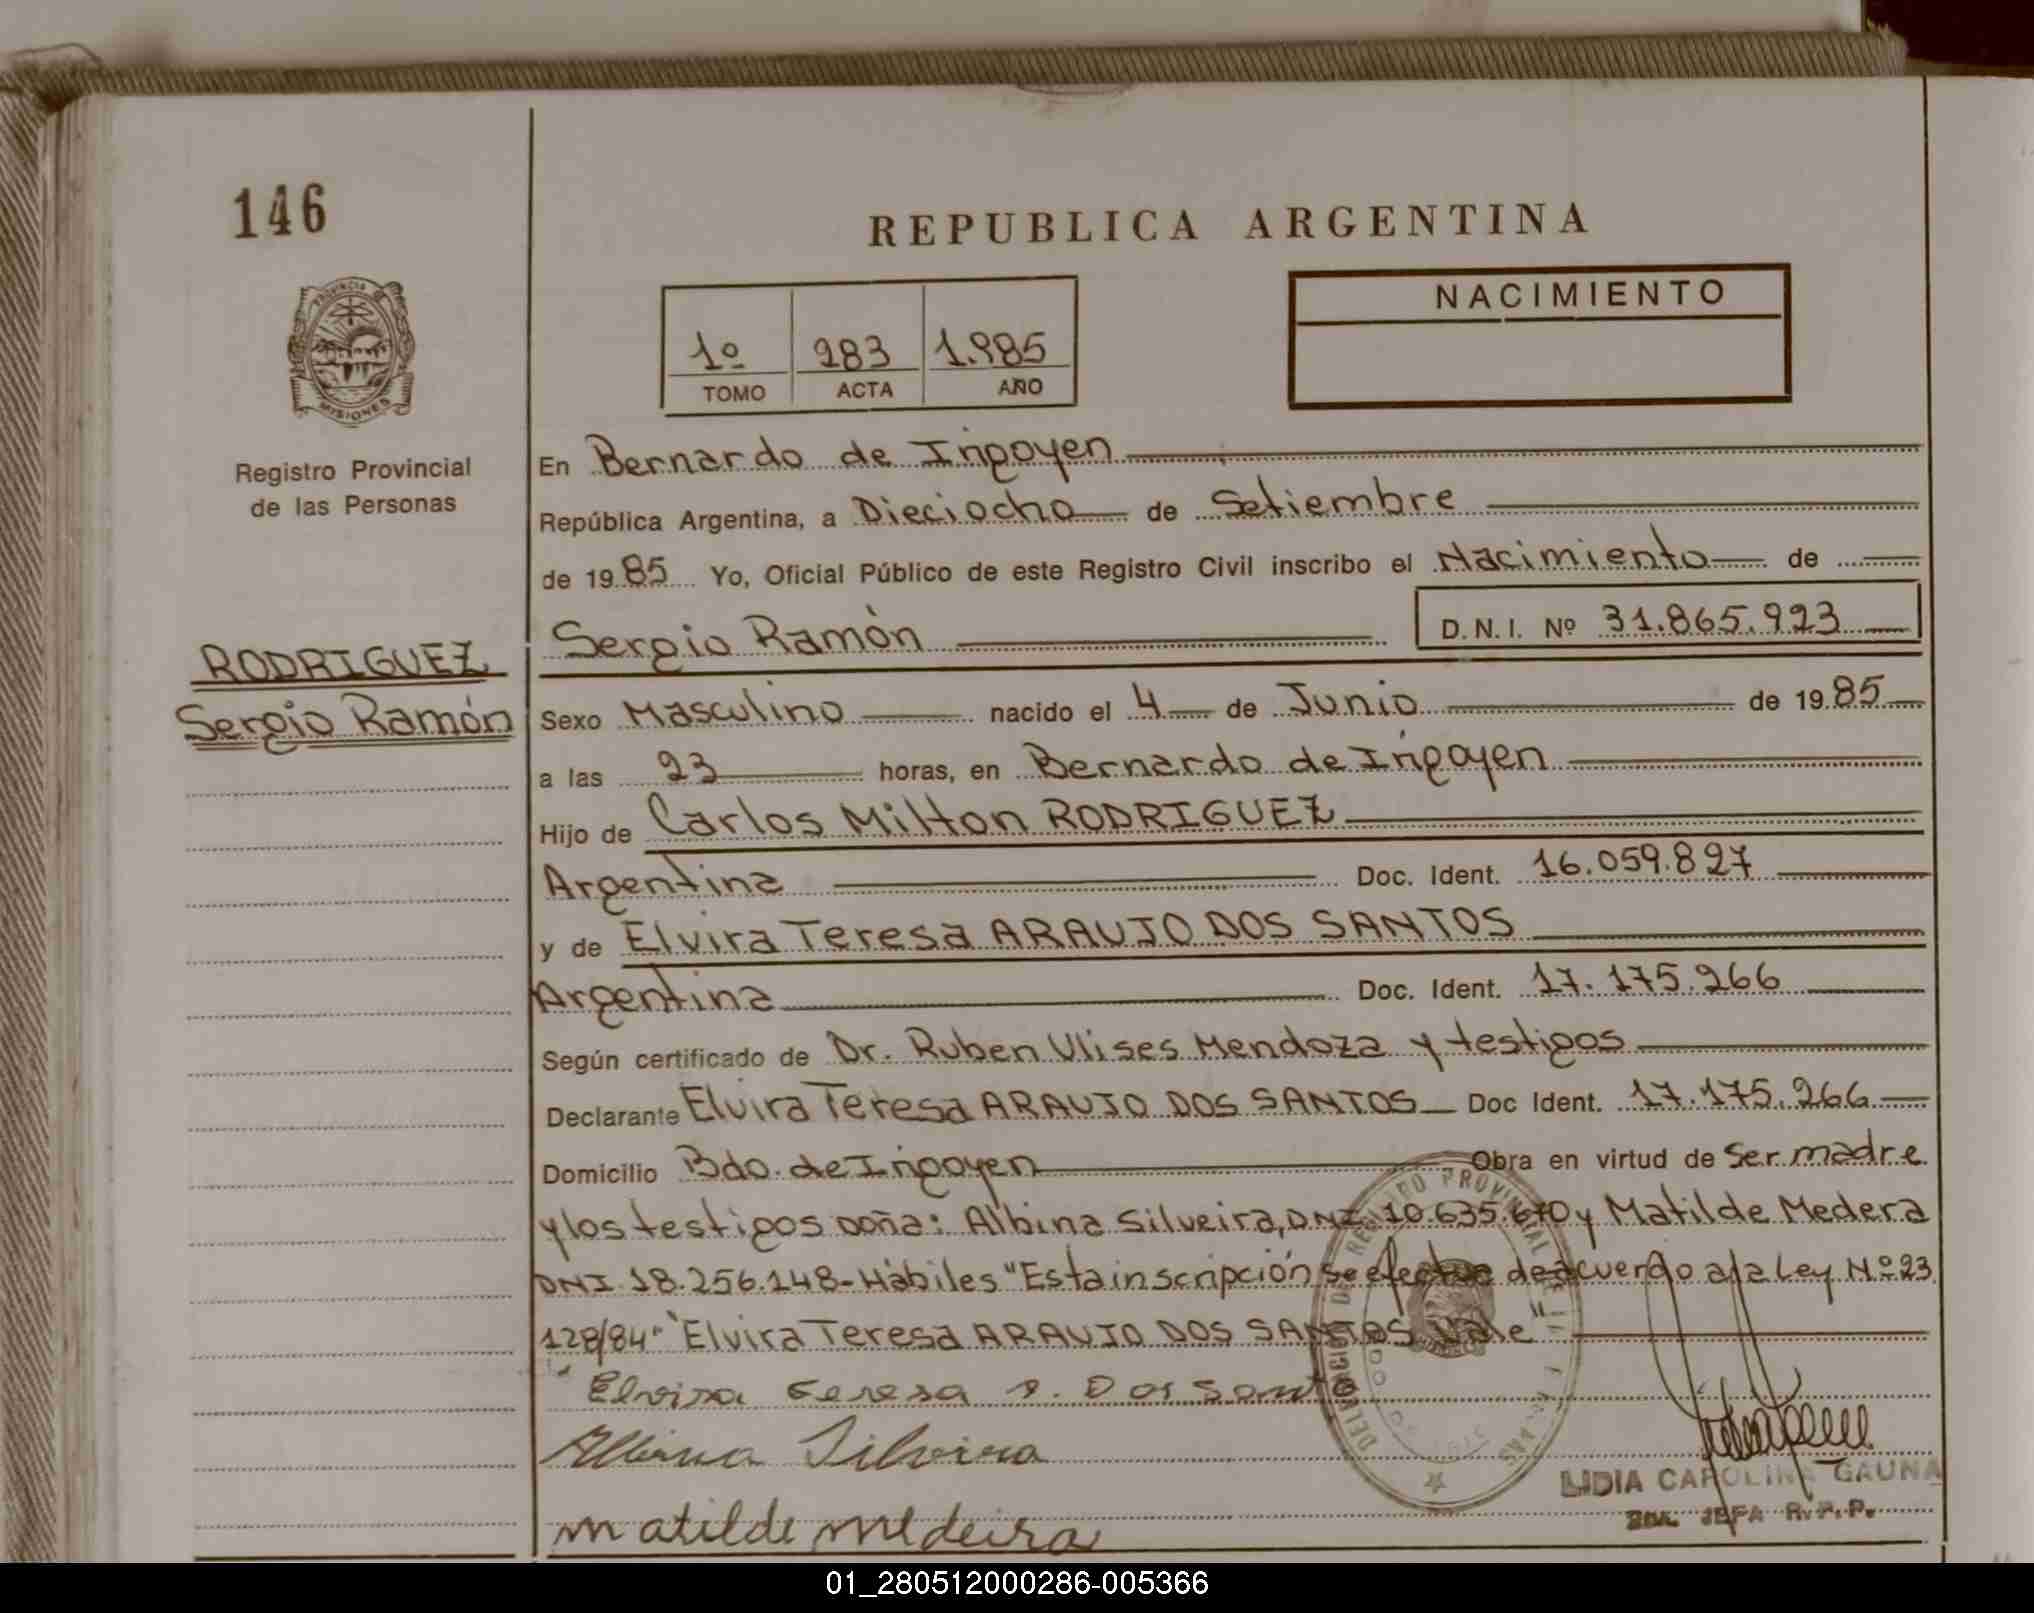 146
REPUBLICA ARGENTINA
NACIMIENTO
1º 283 1.985
TOMO ACTA AÑO
PROVINCIA DE
MISIONES
Registro Provincial
de las Personas
En Bernardo de Irigoyen
República Argentina, a Dieciocho de Setiembre
de 1985 Yo, Oficial Público de este Registro Civil inscribo el Nacimiento de
Sergio Ramón D.N.I. Nº 31.865.923
RODRIGUEZ
Sergio Ramón
Sexo Masculino nacido el 4 de Junio de 1985
a las 23 horas, en Bernardo de Irigoyen
Hijo de Carlos Milton RODRIGUEZ
Argentina Doc. Ident. 16.059.827
y de Elvira Teresa ARAUJO DOS SANTOS
Argentina Doc. Ident. 17.175.266
Según certificado de Dr. Ruben Ulises Mendoza y testigos
Declarante Elvira Teresa ARAUJO DOS SANTOS Doc Ident. 17.175.266
Domicilio Bdo. de Irigoyen Obra en virtud de ser madre
y los testigos doña: Albina Silveira, DNI 10.635.670 y Matilde Medera
DNI 18.256.148- Hábiles "Esta inscripción se efectua de acuerdo a la Ley Nº 23
128/84" "Elvira Teresa ARAUJO DOS SANTOS Vale"
Elvira Teresa A. Dos Santo
Albina Silveira
matilde medeira
REGISTRO PROVINCIAL DE LA
LIDIA CAROLINA GAUNA
JEFA R.P.P.
01_280512000286-005366